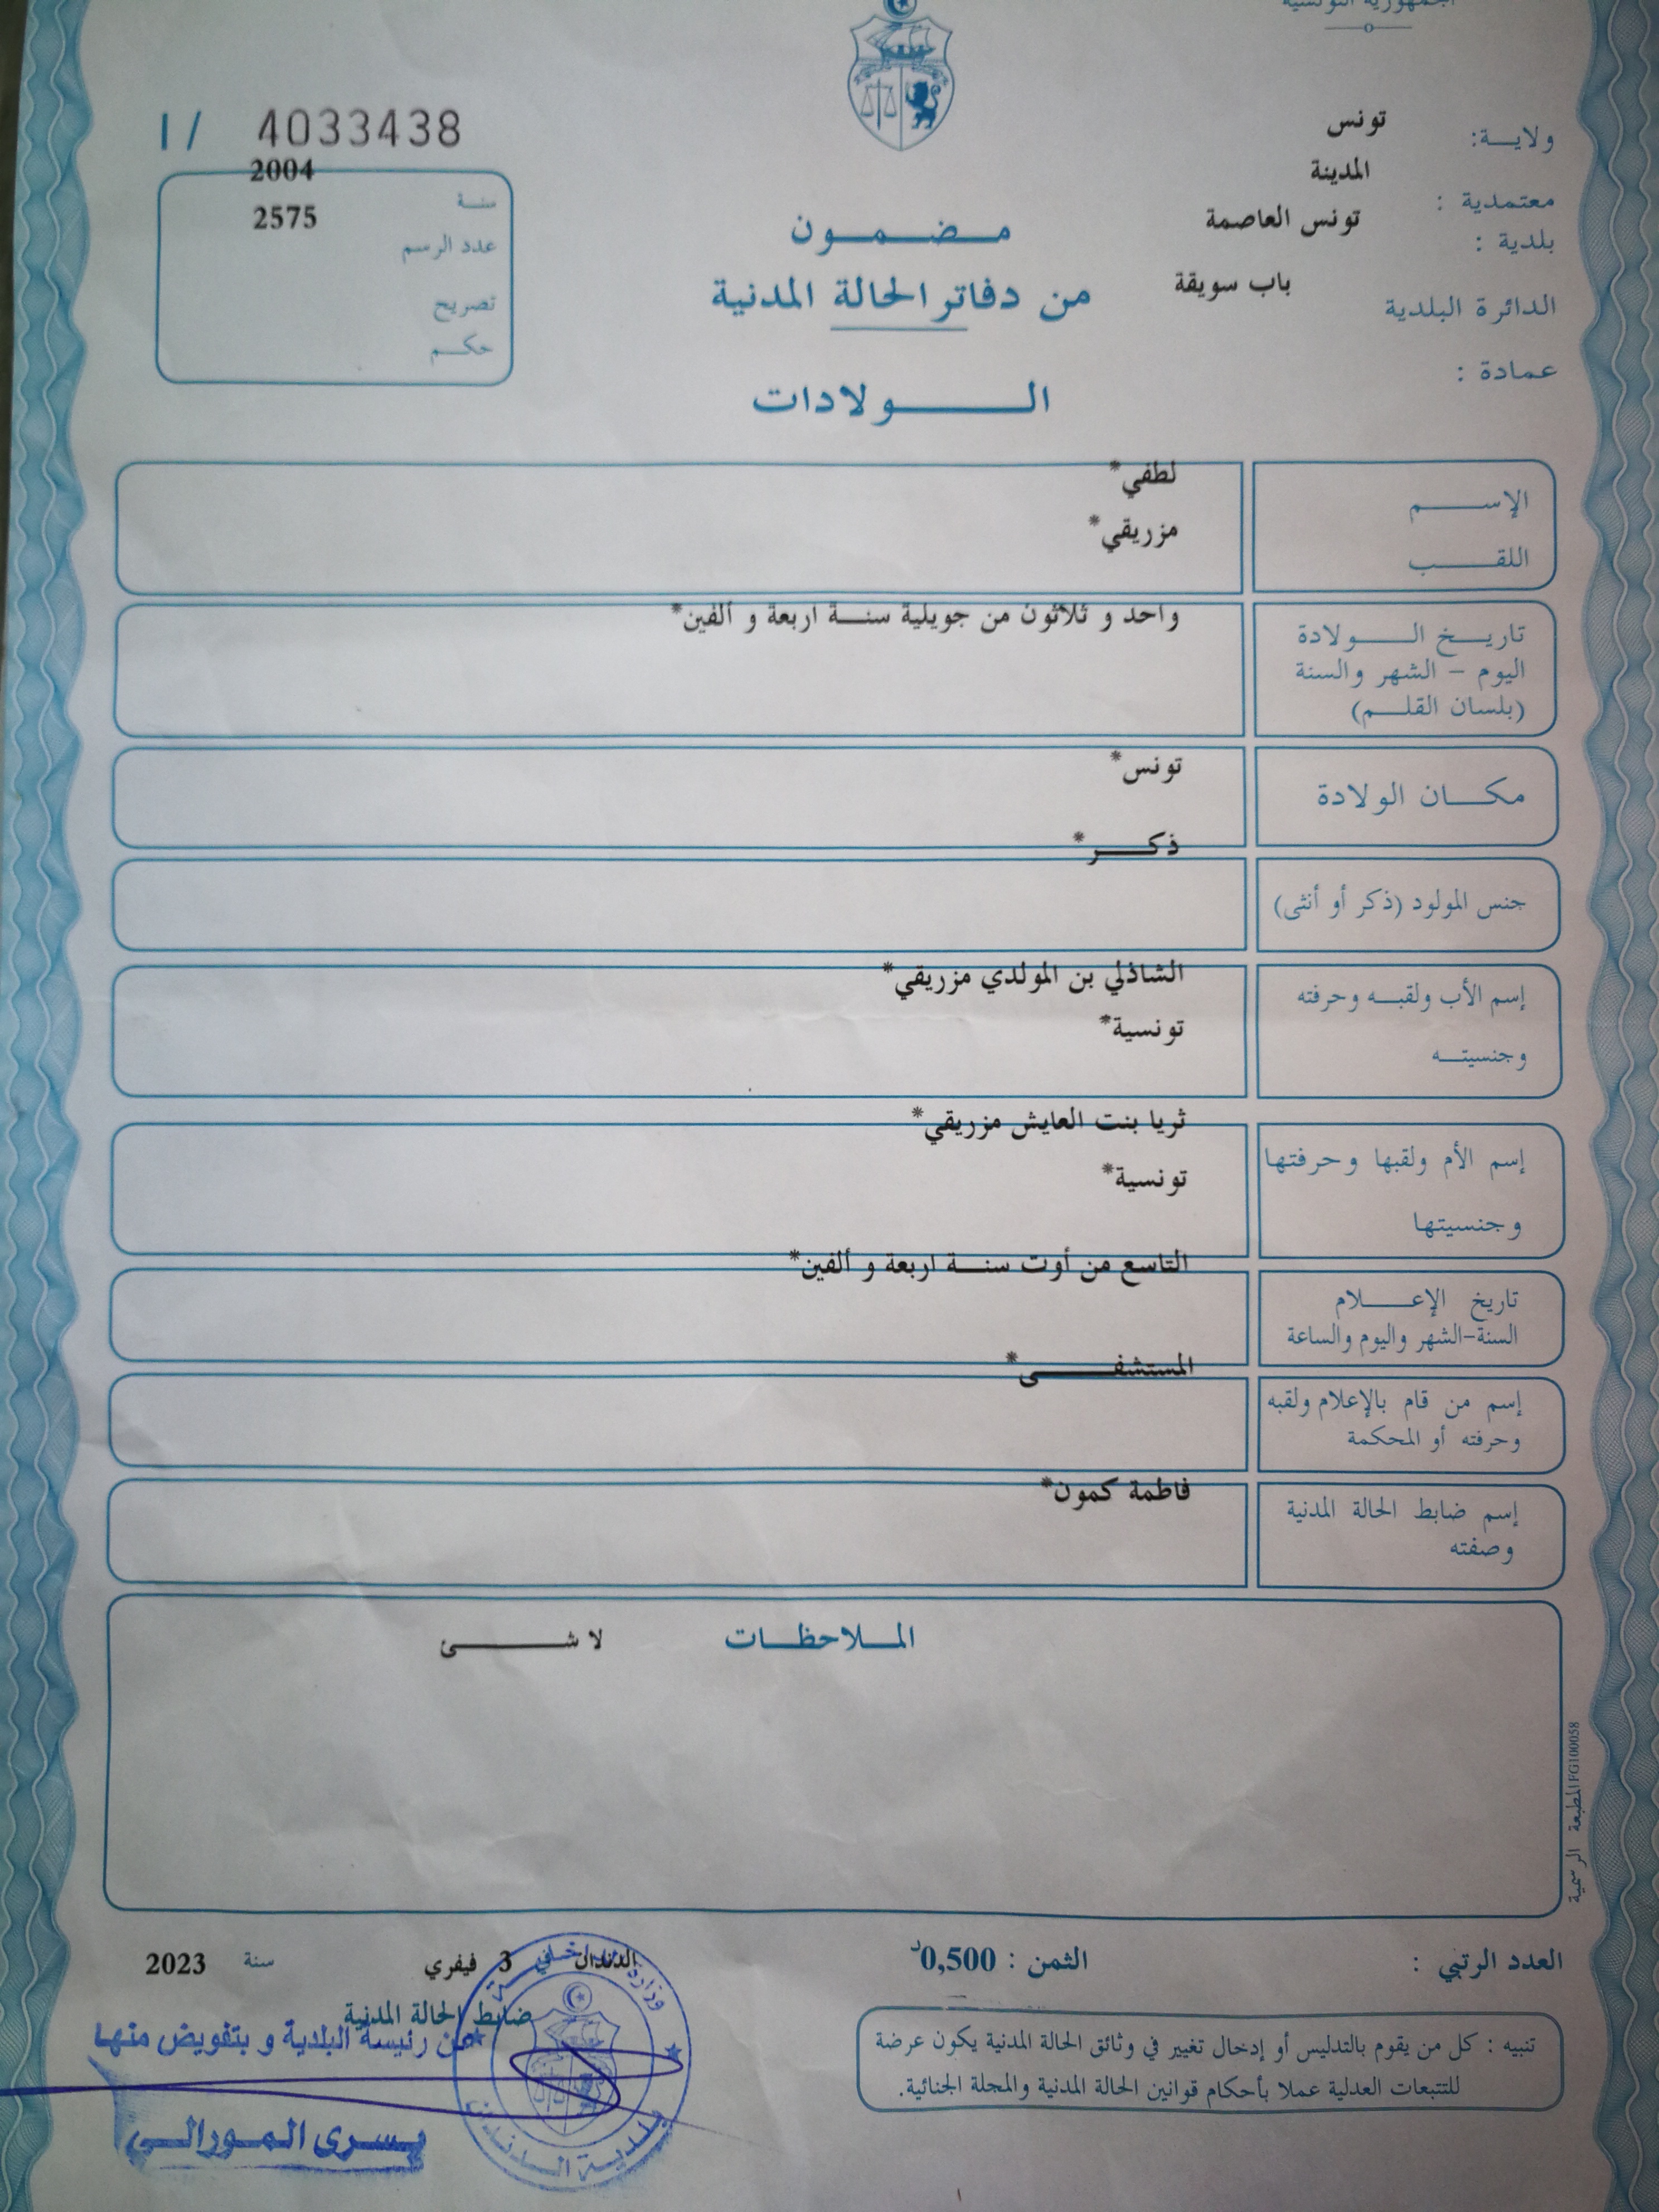 الجمهورية التونسية
ولايــة: تونس
معتمدية : المدينة
بلدية : تونس العاصمة
الدائرة البلدية باب سويقة
عمادة :
1/ 4033438
سنة 2004
عدد الرسم 2575
تصريح
حكــم
مـضـمـون
من دفاتر الحالة المدنية
الــولادات
الإســـم لطفي*
اللقــب مزريقي*
تاريــخ الــولادة واحد و ثلاثون من جويلية سنــة اربعة و ألفين*
اليوم – الشهر والسنة
(بلسان القلــم)
مكــان الولادة تونس*
جنس المولود (ذكر أو أنثى) ذكــر*
إسم الأب ولقبــه وحرفته الشاذلي بن المولدي مزريقي*
وجنسيتــه تونسية*
إسم الأم ولقبها وحرفتها ثريا بنت العايش مزريقي*
وجنسيتها تونسية*
تاريخ الإعــلام التاسع من أوت سنــة اربعة و ألفين*
السنة-الشهر واليوم والساعة
إسم من قام بالإعلام ولقبه المستشفــى*
وحرفته أو المحكمة
إسم ضابط الحالة المدنية فاطمة كمون*
وصفته
المــلاحظــات لا شــئ
المطبعة الرسمية FG100058
العدد الرتبي :
الثمن : 0,500د
الدندان 3 فيفري سنة 2023
ضابط الحالة المدنية
عن رئيسة البلدية و بتفويض منها
يسرى المورالي
وزارة الداخلية
بلدية الدندان
تنبيه : كل من يقوم بالتدليس أو إدخال تغيير في وثائق الحالة المدنية يكون عرضة
للتتبعات العدلية عملا بأحكام قوانين الحالة المدنية والمجلة الجنائية.